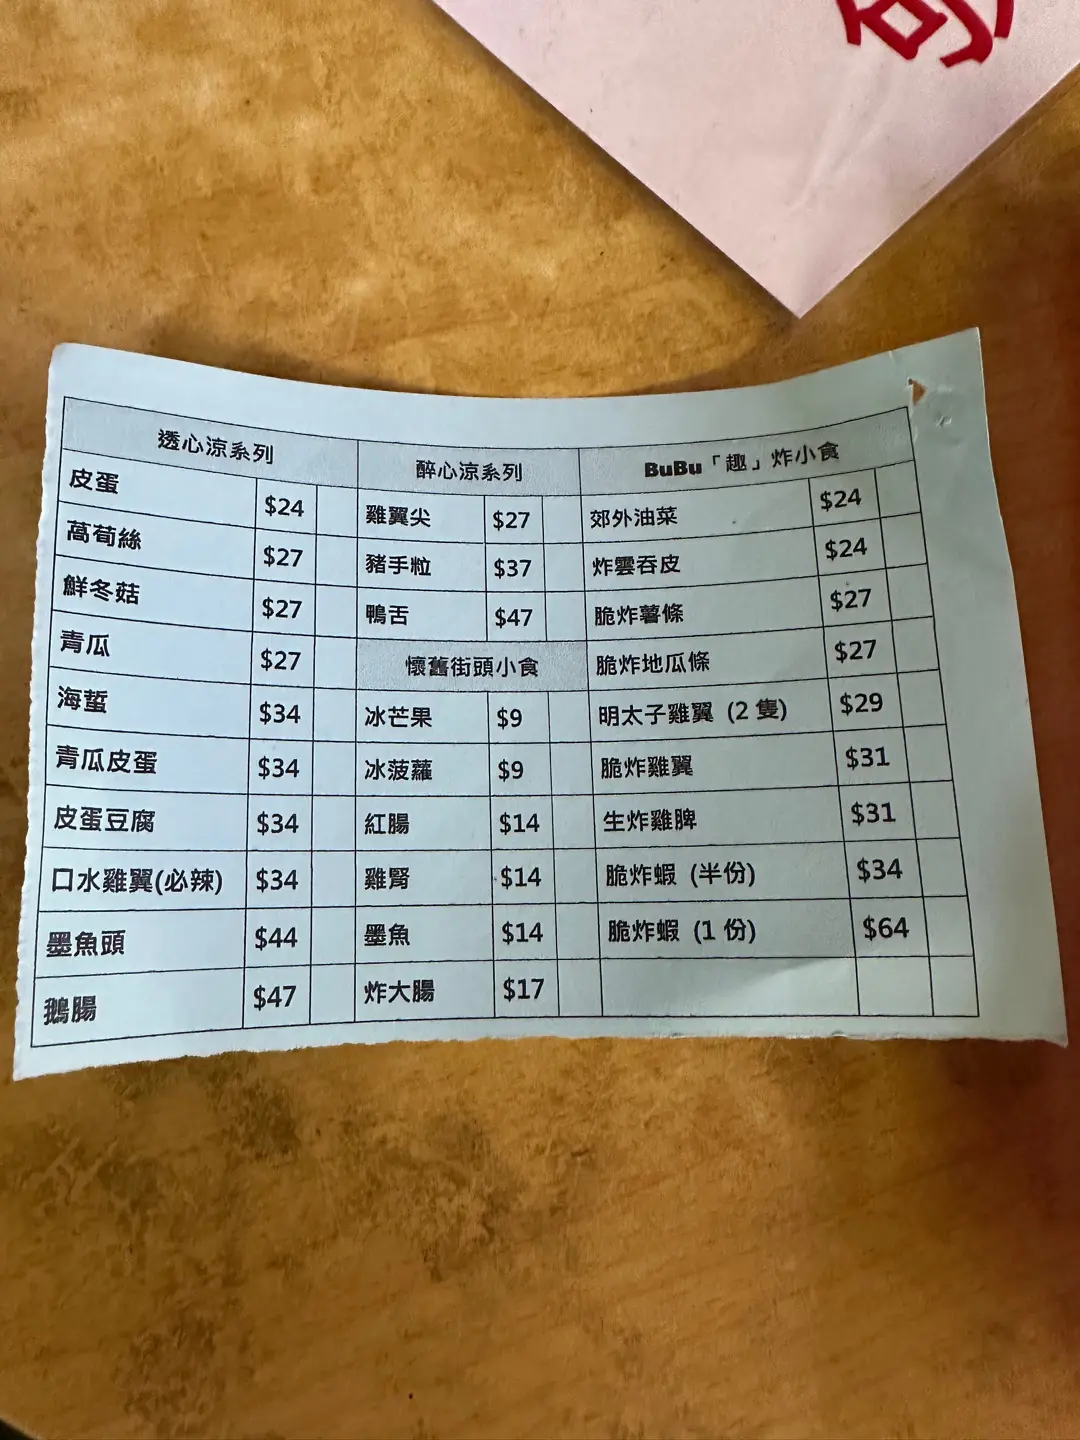 透心涼系列
皮蛋 $24
萵荀絲 $27
鮮冬菇 $27
青瓜 $27
海蜇 $34
青瓜皮蛋 $34
皮蛋豆腐 $34
口水雞翼(必辣) $34
墨魚頭 $44
鵝腸 $47
醉心涼系列
雞翼尖 $27
豬手粒 $37
鴨舌 $47
懷舊街頭小食
冰芒果 $9
冰菠蘿 $9
紅腸 $14
雞腎 $14
墨魚 $14
炸大腸 $17
BuBu「趣」炸小食
郊外油菜 $24
炸雲吞皮 $24
脆炸薯條 $27
脆炸地瓜條 $27
明太子雞翼 (2 隻) $29
脆炸雞翼 $31
生炸雞脾 $31
脆炸蝦 (半份) $34
脆炸蝦 (1 份) $64